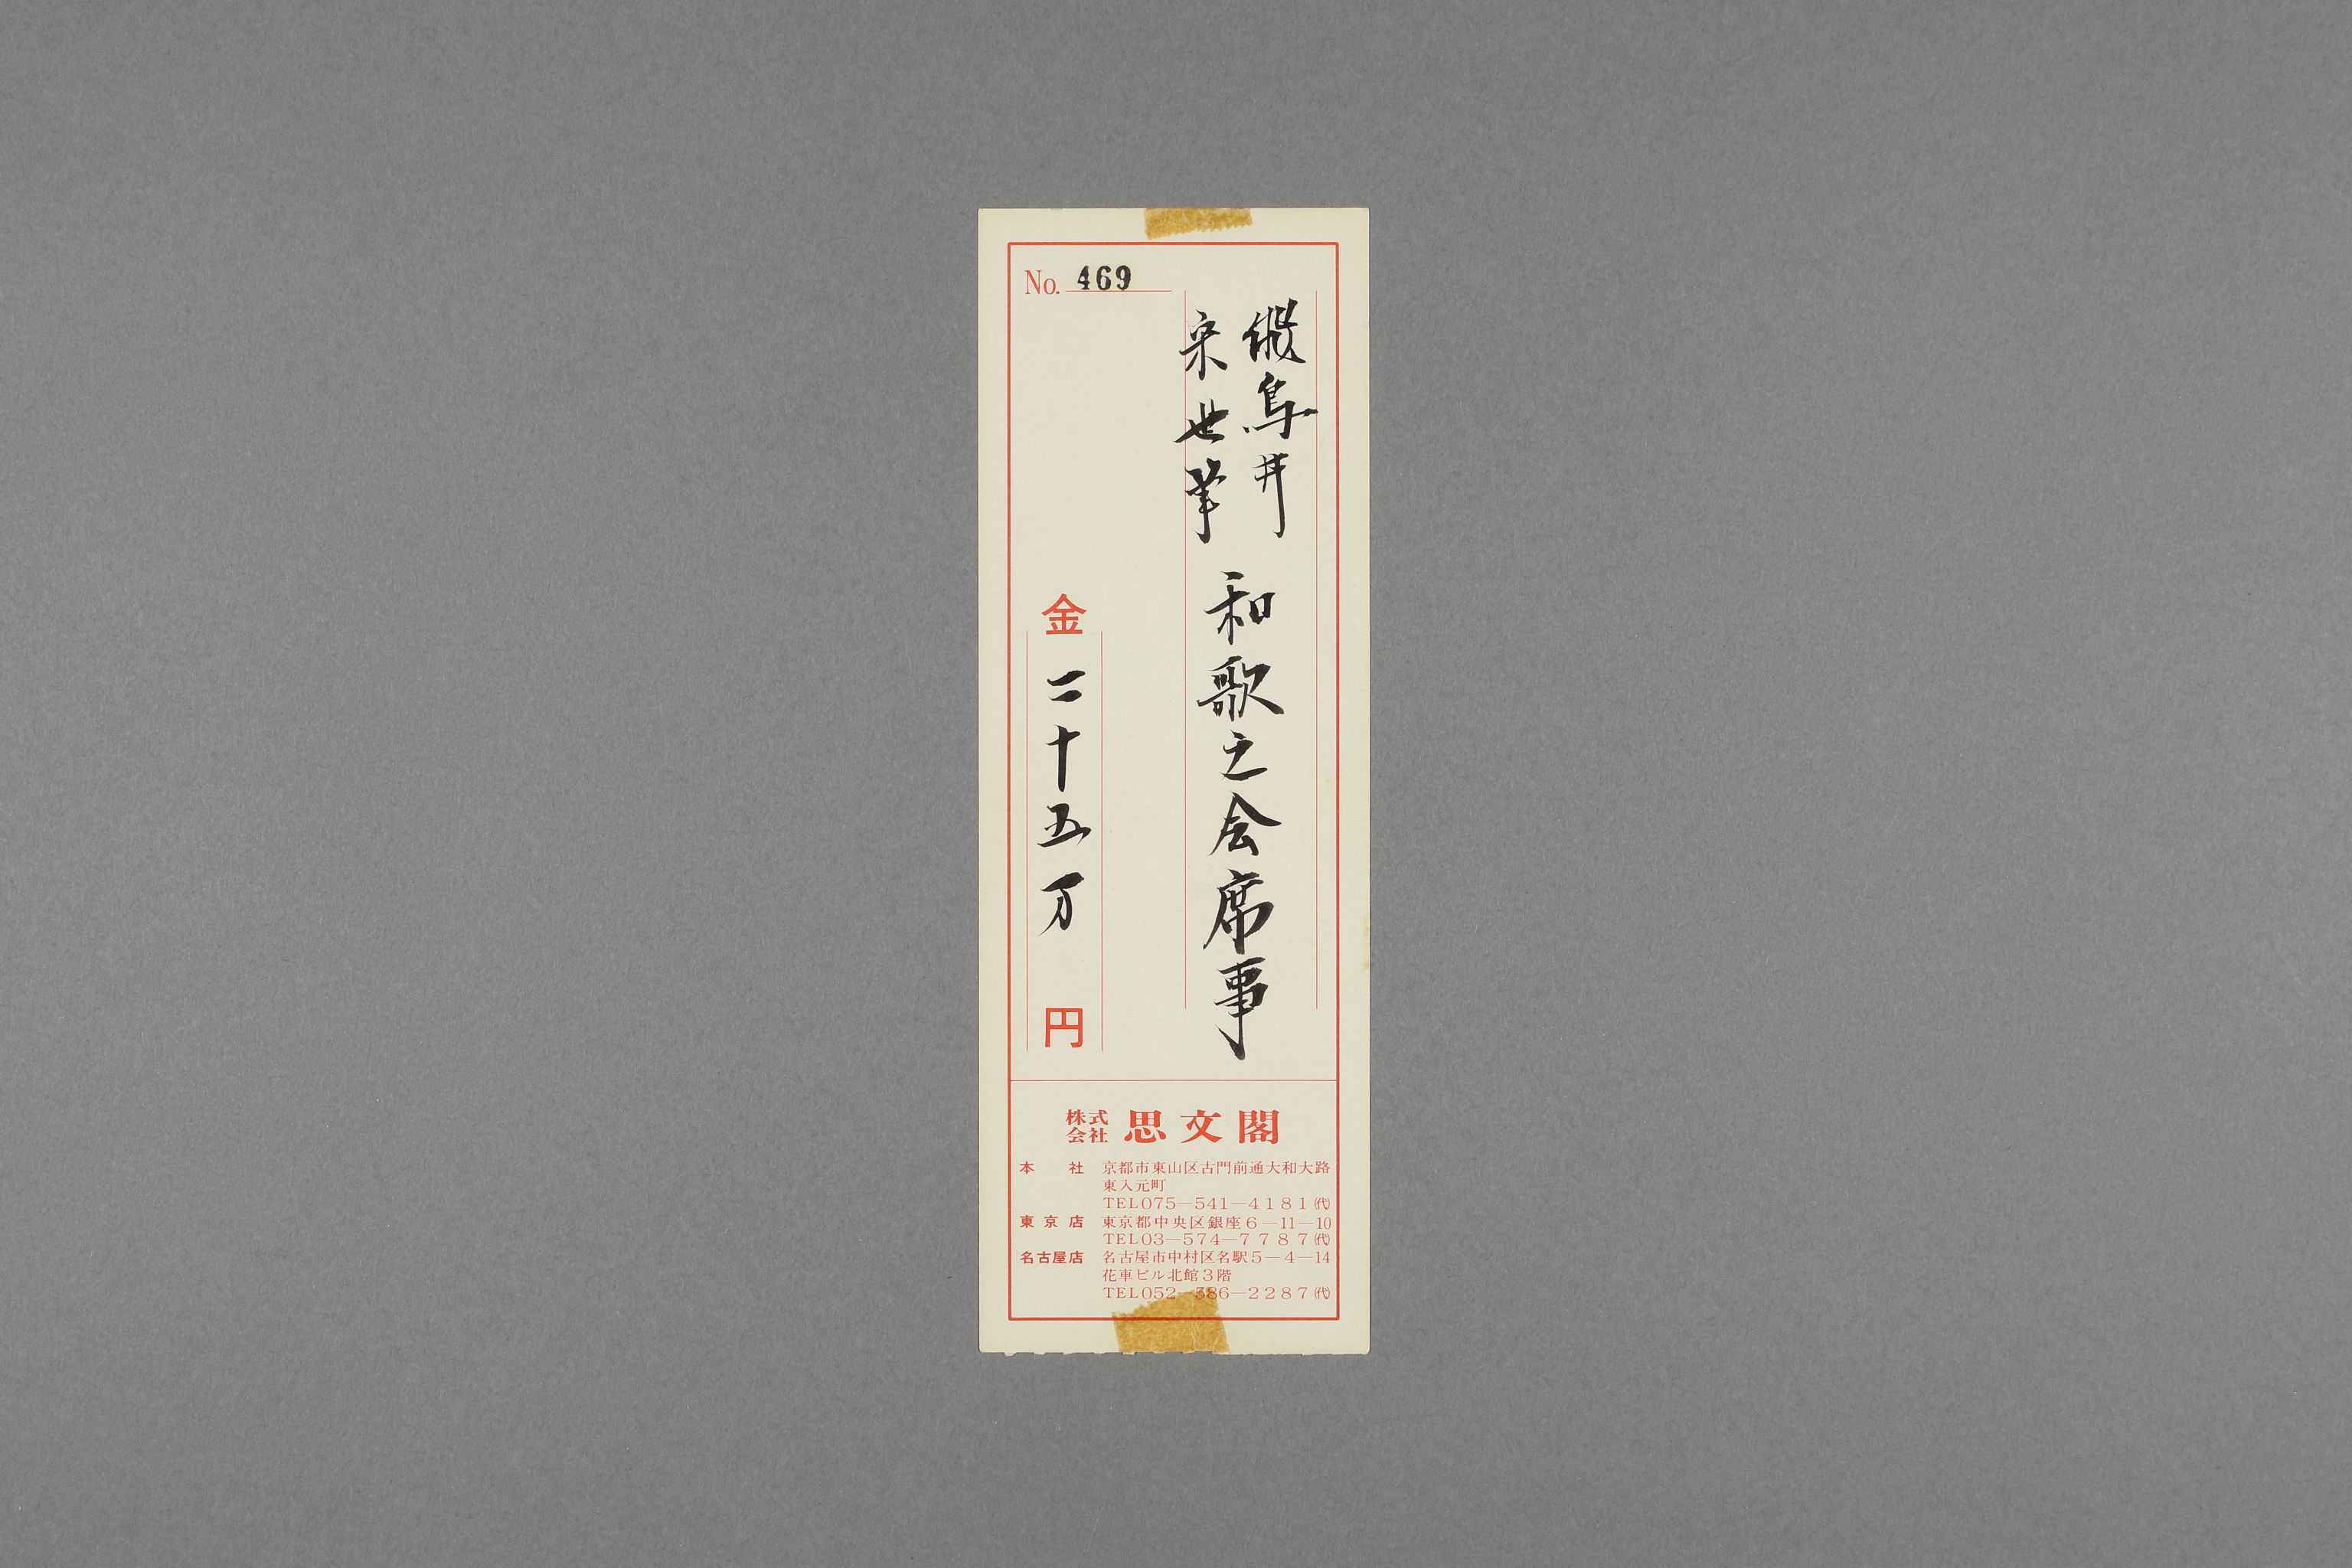 No. 469
飛鳥井
宋世筆
和歌之会席事
金 二十五万 円
株式会社 思文閣
本社 京都市東山区古門前通大和大路
東入元町
TEL075—541—4181㈹
東京店 東京都中央区銀座6—11—10
TEL03—574—7787㈹
名古屋店 名古屋市中村区名駅5—4—14
花車ビル北館3階
TEL052—586—2287㈹